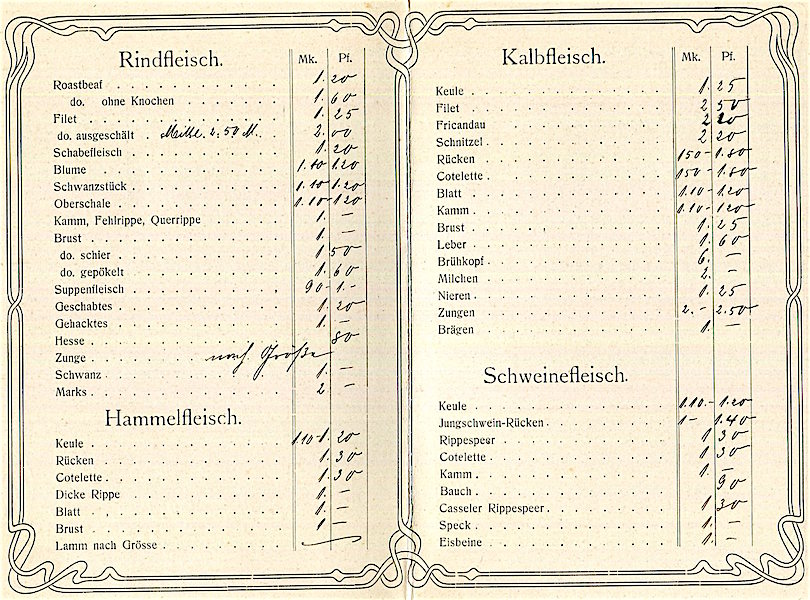 Rindfleisch. Mk. Pf.
Roastbeaf 1. 20
do. ohne Knochen 1. 60
Filet 1. 25
do. ausgeschält . Mitte 2.50 M. 2. 00
Schabefleisch 1. 20
Blume 1.10 1.20
Schwanzstück 1.10 1.20
Oberschale 1.10 1.20
Kamm, Fehlrippe, Querrippe 1. —
Brust 1. —
do. schier 1 50
do. gepökelt 1. 60
Suppenfleisch 90 - 1.-
Geschabtes 1. 20
Gehacktes 1. —
Hesse 80
Zunge nach Größe
Schwanz 1. —
Marks 2 —
Hammelfleisch.
Keule 1.10-1. 20
Rücken 1. 30
Cotelette 1. 30
Dicke Rippe 1. —
Blatt 1. —
Brust 1 —
Lamm nach Grösse
Kalbfleisch. Mk. Pf.
Keule 1. 25
Filet 2 50
Fricandau 2 20
Schnitzel 2 20
Rücken 150 - 1.80
Cotelette 150 - 1.80
Blatt 1.10 - 1.20
Kamm 1.10 - 1.20
Brust 1. 25
Leber 1. 60
Brühkopf 6. —
Milchen 2. —
Nieren 1. 25
Zungen 2.- 2.50
Brägen 1. —
Schweinefleisch.
Keule 1.10.- 1.20
Jungschwein-Rücken 1 - 1.40
Rippespeer 1 30
Cotelette 1 30
Kamm 1. —
Bauch 90
Casseler Rippespeer 1 30
Speck 1. —
Eisbeine 1. —